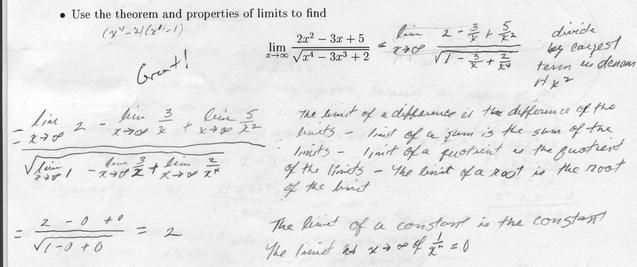 • Use the theorem and properties of limits to find
(x⁴-2)(x⁴-1)
lim x→∞ 2x² − 3x + 5 / √(x⁴ − 3x³ + 2) = lim x→∞ 2 - 3/x + 5/x² / √(1 - 3/x + 2/x⁴)
divide
by largest
term in denom
x²
Great!
= lim x→∞ 2 - lim x→∞ 3/x + lim x→∞ 5/x² / √(lim x→∞ 1 - lim x→∞ 3/x + lim x→∞ 2/x⁴)
The limit of a difference is the difference of the
limits - limit of a sum is the sum of the
limits - limit of a quotient is the quotient
of the limits - the limit of a root is the root
of the limit
= 2 - 0 + 0 / √(1-0+0) = 2
The limit of a constant is the constant
The limit as x→∞ of 1/xⁿ = 0